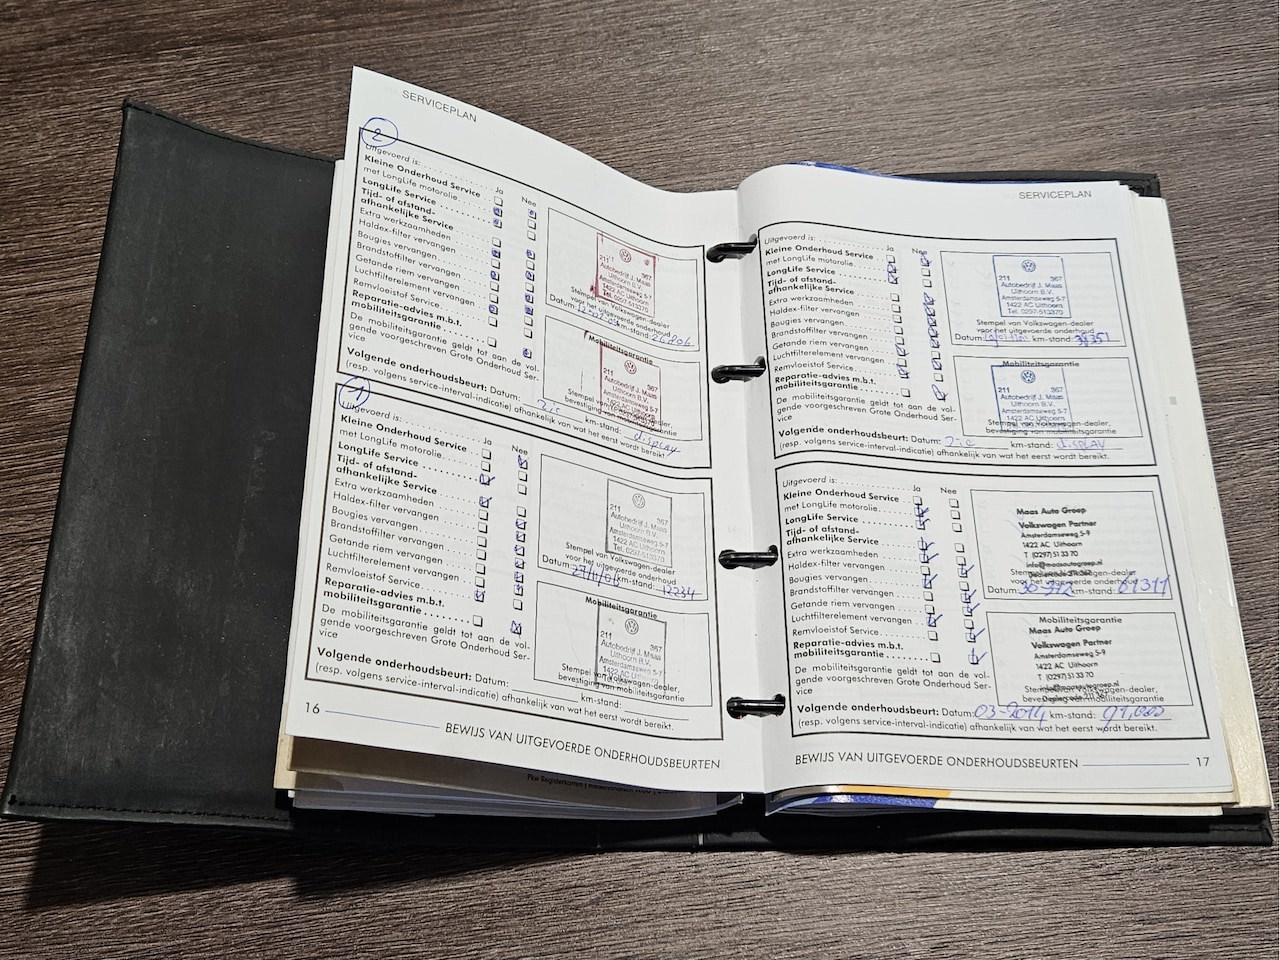 SERVICEPLAN
2
Uitgevoerd is:
Ja Nee
Kleine Onderhoud Service
met LongLife motorolie
LongLife Service
Tijd- of afstand-
afhankelijke Service
Extra werkzaamheden
Haldex-filter vervangen
Bougies vervangen
Brandstoffilter vervangen
Getande riem vervangen
Luchtfilterelement vervangen
Remvloeistof Service
Reparatie-advies m.b.t.
mobiliteitsgarantie
De mobiliteitsgarantie geldt tot aan de vol-
gende voorgeschreven Grote Onderhoud Ser-
vice
211 367
Autobedrijf J. Maas
Uithoorn B.V.
Amsterdamseweg 5-7
1422 AC Uithoorn
Tel. 0297-513370
Stempel van Volkswagen-dealer
voor het uitgevoerde onderhoud
Datum: km-stand: 26806
Mobiliteitsgarantie
211 367
Autobedrijf J. Maas
Uithoorn B.V.
Amsterdamseweg 5-7
1422 AC Uithoorn
Stempel van Volkswagen-dealer,
bevestiging van mobiliteitsgarantie
Volgende onderhoudsbeurt: Datum: Zie km-stand: display
(resp. volgens service-interval-indicatie) afhankelijk van wat het eerst wordt bereikt.
1
Uitgevoerd is:
Ja Nee
Kleine Onderhoud Service
met LongLife motorolie
LongLife Service
Tijd- of afstand-
afhankelijke Service
Extra werkzaamheden
Haldex-filter vervangen
Bougies vervangen
Brandstoffilter vervangen
Getande riem vervangen
Luchtfilterelement vervangen
Remvloeistof Service
Reparatie-advies m.b.t.
mobiliteitsgarantie
De mobiliteitsgarantie geldt tot aan de vol-
gende voorgeschreven Grote Onderhoud Ser-
vice
211 367
Autobedrijf J. Maas
Uithoorn B.V.
Amsterdamseweg 5-7
1422 AC Uithoorn
Tel. 0297-513370
Stempel van Volkswagen-dealer
voor het uitgevoerde onderhoud
Datum: km-stand: 12234
Mobiliteitsgarantie
211 367
Autobedrijf J. Maas
Uithoorn B.V.
Amsterdamseweg 5-7
1422 AC Uithoorn
Stempel van Volkswagen-dealer,
bevestiging van mobiliteitsgarantie
Volgende onderhoudsbeurt: Datum: km-stand:
(resp. volgens service-interval-indicatie) afhankelijk van wat het eerst wordt bereikt.
16
BEWIJS VAN UITGEVOERDE ONDERHOUDSBEURTEN
SERVICEPLAN
Uitgevoerd is:
Ja Nee
Kleine Onderhoud Service
met LongLife motorolie
LongLife Service
Tijd- of afstand-
afhankelijke Service
Extra werkzaamheden
Haldex-filter vervangen
Bougies vervangen
Brandstoffilter vervangen
Getande riem vervangen
Luchtfilterelement vervangen
Remvloeistof Service
Reparatie-advies m.b.t.
mobiliteitsgarantie
De mobiliteitsgarantie geldt tot aan de vol-
gende voorgeschreven Grote Onderhoud Ser-
vice
211 367
Autobedrijf J. Maas
Uithoorn B.V.
Amsterdamseweg 5-7
1422 AC Uithoorn
Tel. 0297-513370
Stempel van Volkswagen-dealer
voor het uitgevoerde onderhoud
Datum: km-stand:
Mobiliteitsgarantie
211 367
Autobedrijf J. Maas
Uithoorn B.V.
Amsterdamseweg 5-7
1422 AC Uithoorn
Stempel van Volkswagen-dealer,
bevestiging van mobiliteitsgarantie
Volgende onderhoudsbeurt: Datum: Zie km-stand: display
(resp. volgens service-interval-indicatie) afhankelijk van wat het eerst wordt bereikt.
Uitgevoerd is:
Ja Nee
Kleine Onderhoud Service
met LongLife motorolie
LongLife Service
Tijd- of afstand-
afhankelijke Service
Extra werkzaamheden
Haldex-filter vervangen
Bougies vervangen
Brandstoffilter vervangen
Getande riem vervangen
Luchtfilterelement vervangen
Remvloeistof Service
Reparatie-advies m.b.t.
mobiliteitsgarantie
De mobiliteitsgarantie geldt tot aan de vol-
gende voorgeschreven Grote Onderhoud Ser-
vice
Maas Auto Groep
Volkswagen Partner
Amsterdamseweg 5-9
1422 AC Uithoorn
T (0297) 51 33 70
info@maasautogroep.nl
Dealercode 211 367
Stempel van Volkswagen-dealer
voor het uitgevoerde onderhoud
Datum: km-stand: 81311
Mobiliteitsgarantie
Maas Auto Groep
Volkswagen Partner
Amsterdamseweg 5-9
1422 AC Uithoorn
T (0297) 51 33 70
info@maasautogroep.nl
Stempel van Volkswagen-dealer,
Dealercode 211 367
bevestiging van mobiliteitsgarantie
Volgende onderhoudsbeurt: Datum: 03-2014 km-stand: 91,000
(resp. volgens service-interval-indicatie) afhankelijk van wat het eerst wordt bereikt.
BEWIJS VAN UITGEVOERDE ONDERHOUDSBEURTEN
17